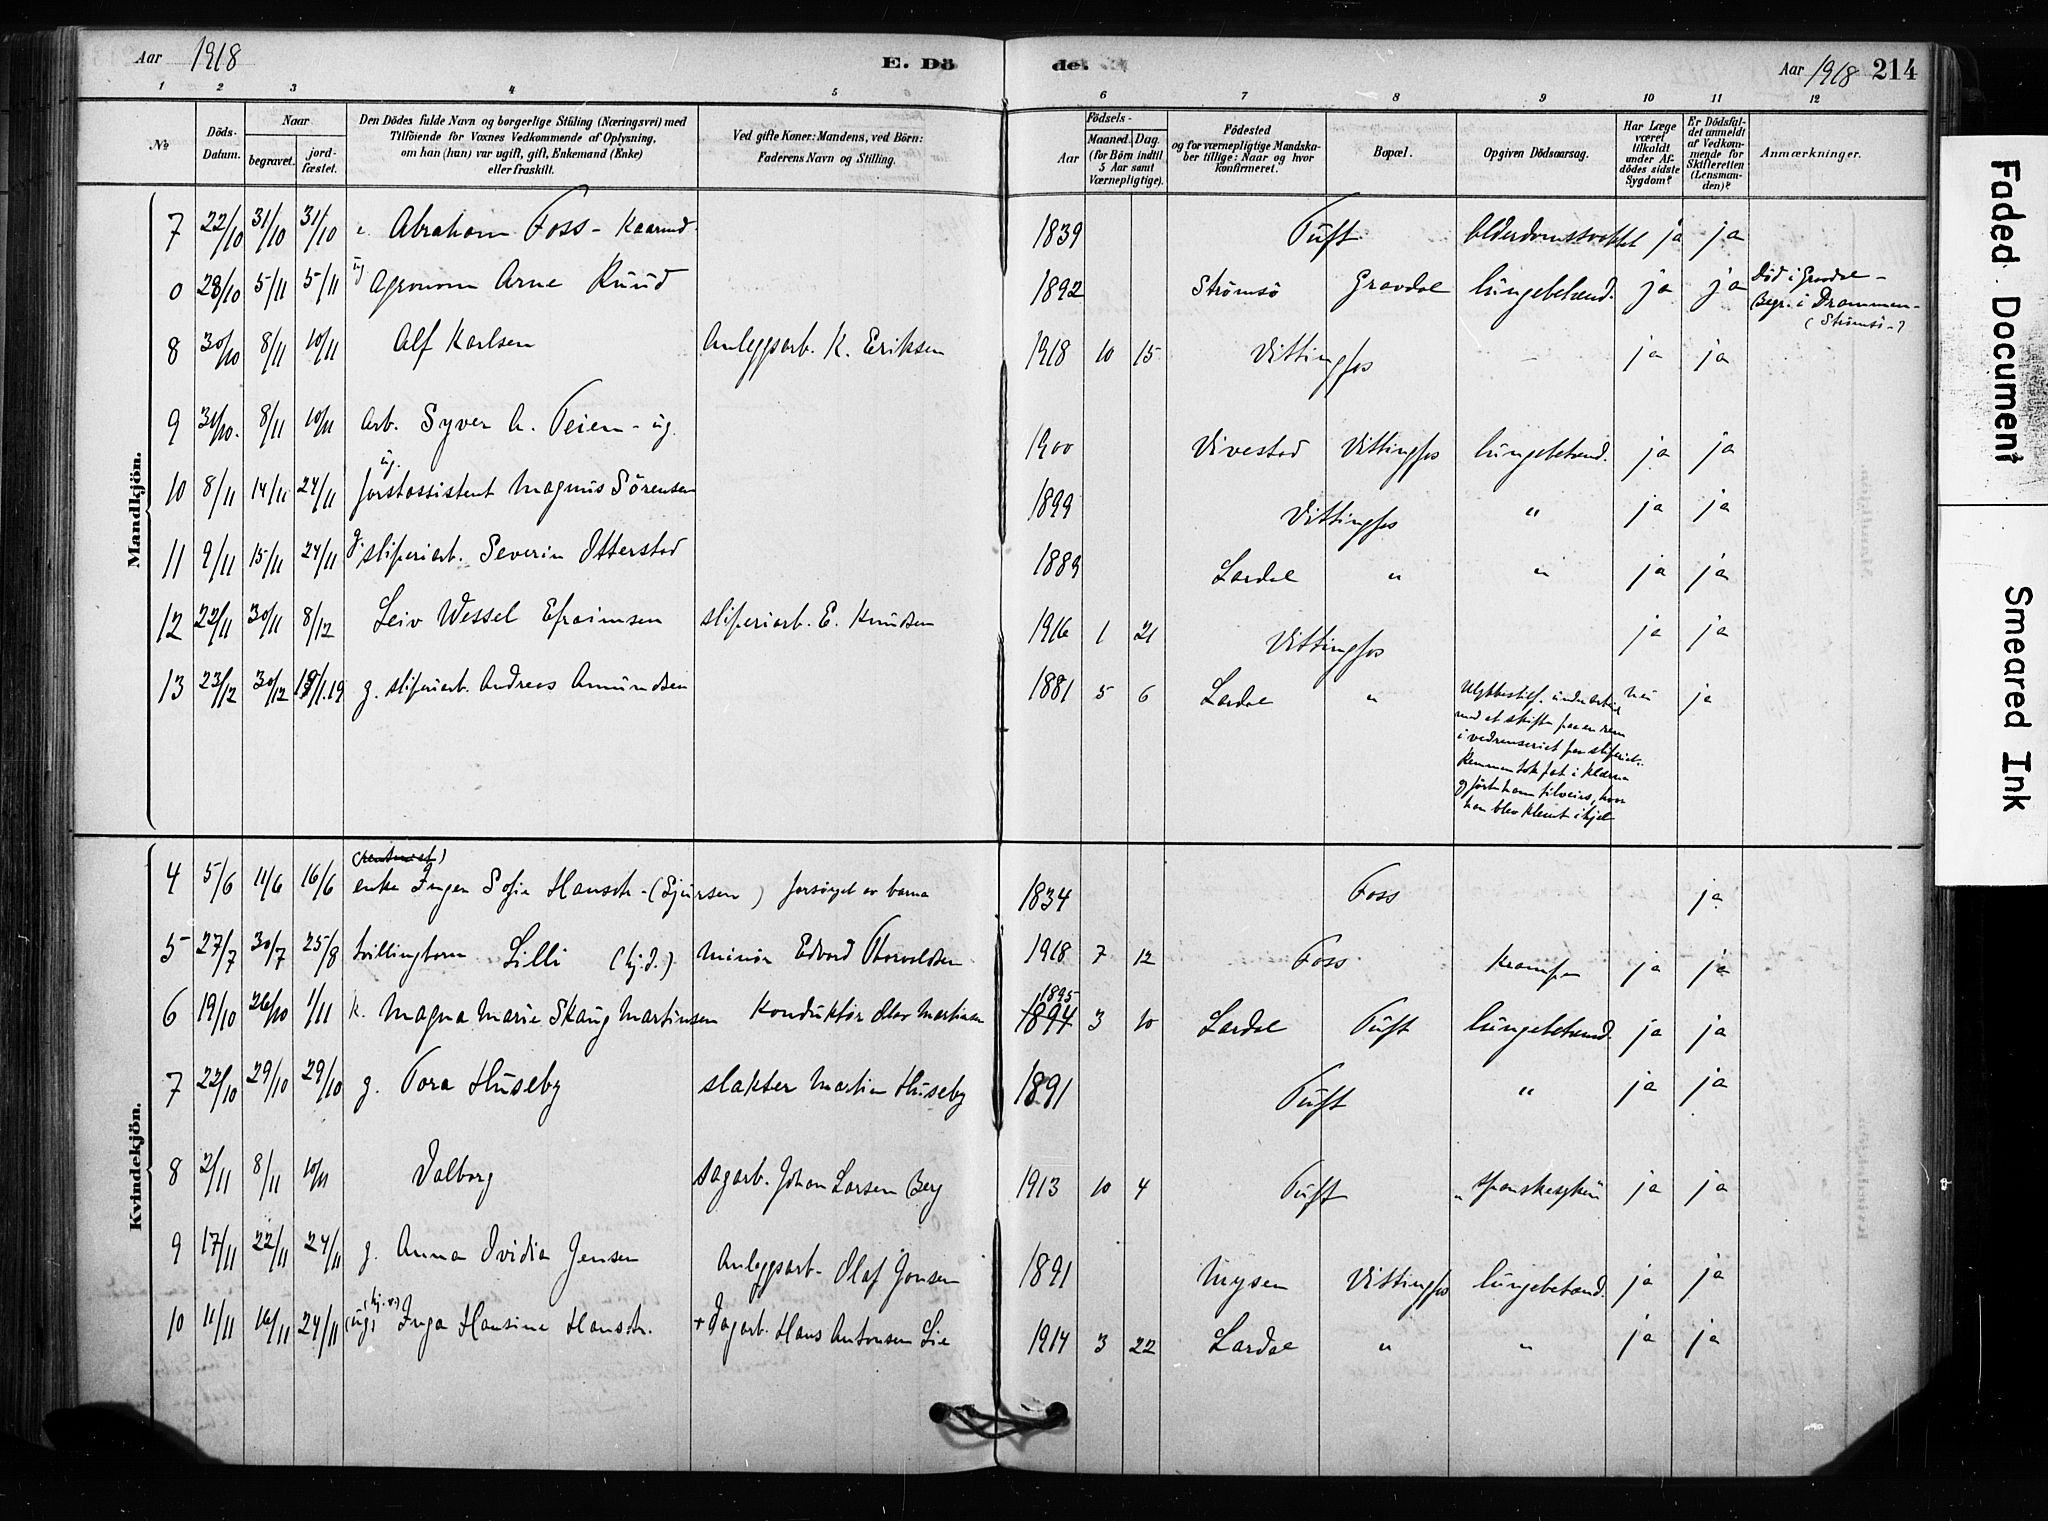 Aar 1918 E. Dö de. Aar 1918 214
1 2 3 4 5 6 7 8 9 10 11 12
No
Döds-Datum.
Naar
begravet.
jord-fæstet.
Den Dödes fulde Navn og borgerlige Stilling (Næringsvei) med
Tilföiende for Voxnes Vedkommende af Oplysning,
om han (hun) var ugift, gift, Enkemand (Enke)
eller fraskilt.
Ved gifte Koner: Mandens, ved Börn:
Faderens Navn og Stilling.
Födsels-
Aar
Maaned. Dag.
(for Börn indtil
5 Aar samt
Værnepligtige).
Födested
og for værnepligtige Mandska-
ber tillige: Naar og hvor
konfirmeret.
Bopæl.
Opgiven Dödsaarsag.
Har Læge
været
tilkaldt
under Af-
dödes sidste
Sygdom?
Er Dödsfal-
det anmeldt
af Vedkom-
mende for
Skifteretten
(Lensman-
den)?
Anmærkninger.
Mandkjön.
7 22/10 31/10 31/10 Abraham Foss - Kaarmd. 1839 Tuft ja ja
0 28/10 5/11 5/11 ug Agronom Arne Ruud 1892 Strømsö Gravdal lungebetænd. ja ja Död i Gravdal - Begr. i Drammen - (Strömsö-)
8 30/10 8/11 10/11 Alf Karlsen Anlegsarb. K. Eriksen 1918 10 15 Vittingfos - ja ja
9 30/10. 8/11 10/11 Arb. Syver A. Teien - ug. 1900 Vivestad Vittingfos lungebetænd. ja ja
10 8/11 14/11 24/11 ug. forstassistent Magnus Sörensen 1899 Vittingfos " ja ja
11 9/11 15/11 24/11 g. sliperiarb. Severin Itterstad 1889 Lardal " " ja ja
12 22/11 30/11 8/12 Leiv Wessel Efraimsen sliperiarb. E. Knudsen 1916 1 21 Vittingfos ja ja
13 23/12 30/12 19/1.19 g. sliperiarb. Andreas Amundsen 1881 5 6 Lardal " Ulykkestilf. under arbeid nei ja
med at skifte paa en rem
i vedrenseriet paa sliperiet.
Remmen tok fat i klærne
og förte ham tilveirs, hvor
han blev klemt ihjel
Kvindekjön.
4 5/6 11/6 16/6 enke Inger Sofie Hansdtr - (Sjursen) forsörget av barna 1834 Foss ja
5 27/7 30/7 25/8 tvillingbarn Lilli (hj.d.) Minör Edvard Thorvaldsen 1918 7 12 Foss krampe ja ja
6 19/10 26/10 1/11 k. Magna Marie Skaug Martinsen Konduktör Olav Martinsen 1895 1894 3 10 Lardal Tuft lungebetænd. ja ja
7 22/10 29/10 29/10 g. Tora Huseby slakter Martin Huseby 1891 Tuft " ja ja
8 2/11 8/11 10/11 Valborg sagarb. Johan Larsen Berg 1913 10 4 Tuft " spanskesyken ja ja
9 17/11 22/11 24/11 g. Anna Ovidia Jensen Anlegsarb. Olaf Jensen 1891 Mysen Vittingfos lungebetænd. ja ja
10 11/11 16/11 24/11 (ug) Inga Hansine Hansdtr. + Dagarb. Hans Antonsen Lie 1914 3 22 Lardal " " ja ja
Faded Document
Smeared Ink